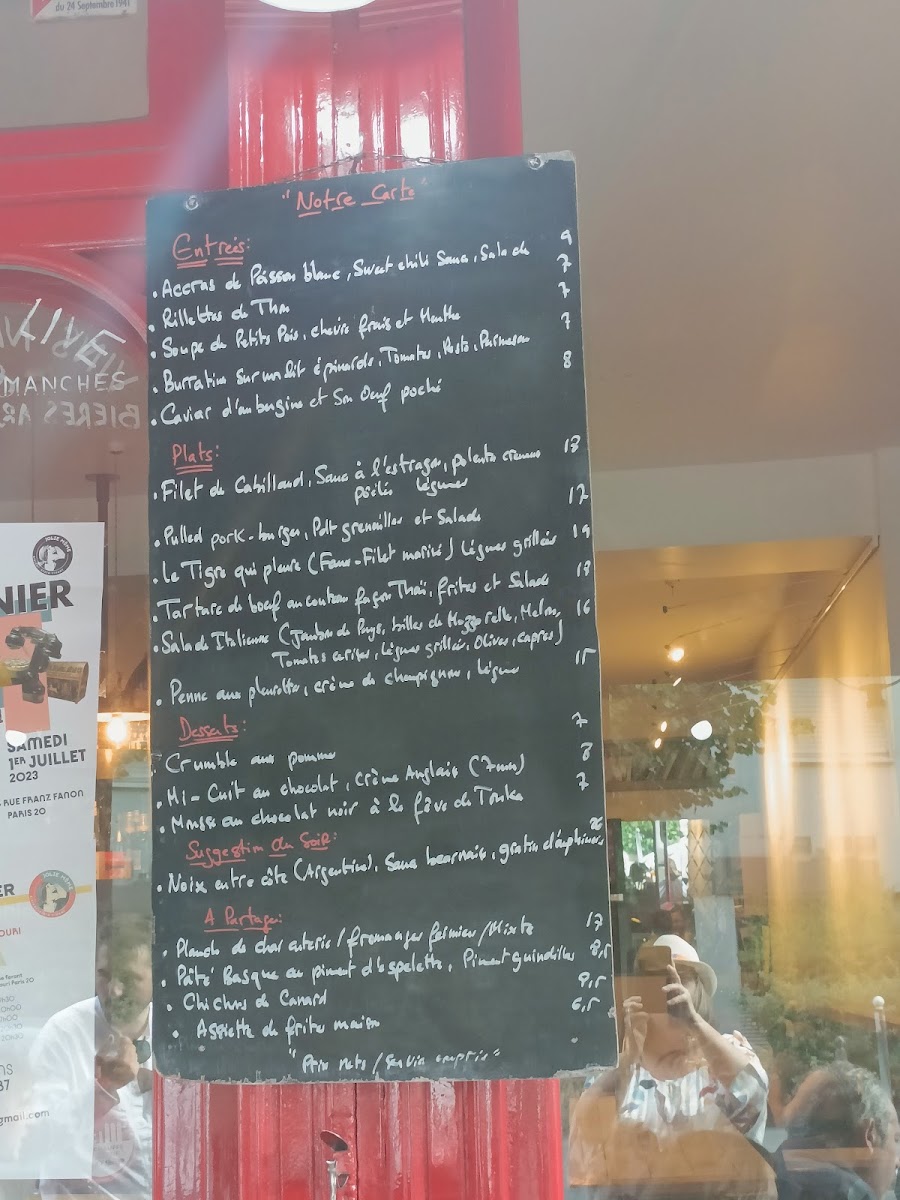 du 24 Septembre 1941
"Notre Carte"
Entrées:
• Accras de Poisson blanc, Sweet chili Sauce, Salade 9
• Rillettes de Thon 7
• Soupe de Petits Pois, chèvre frais et Menthe 7
• Burratina sur un lit épinards, Tomates, Pesto, Parmesan 7
• Caviar d'aubergine et Son Oeuf poché 8
Plats:
• Filet de Cabillaud, Sauce à l'estragon, polenta crémeuse 18
poêlée légumes
• Pulled pork-burger, Pdt grenailles et Salade 17
• Le Tigre qui pleure (Faux-Filet mariné) Légumes grillés 19
• Tartare de boeuf au couteau façon Thaï, frites et Salade 18
• Salade Italienne (Jambon de Pays, billes de Mozzarella, Melon, 16
Tomates cerises, légumes grillés, Olives, capres)
• Penne aux pleurottes, crème de champignons, légumes 15
Desserts:
• Crumble aux pommes 7
• Mi-Cuit au chocolat, Crème Anglaise (7mn) 8
• Mousse au chocolat noir à la fève de Tonka 7
Suggestion du Soir:
• Noix entre côte (Argentine), Sauce bearnaise, gratin dauphinois 26
A Partager:
• Planche de charcuterie/fromages fermiers/Mixte 17
• Pâté Basque au piment d'espelette, Piment guindillas 8,5
• Chichos de Canard 9,5
• Assiette de frites maison 6,5
"Prix nets/Service compris"
LIVE
MANCHES
BIERES AR
JOLIE MÔME
NIER
SAMEDI
1ER JUILLET
2023
RUE FRANZ FANON
PARIS 20
ER
JOLIE MÔME
OURI
Paris 20
gmail.com